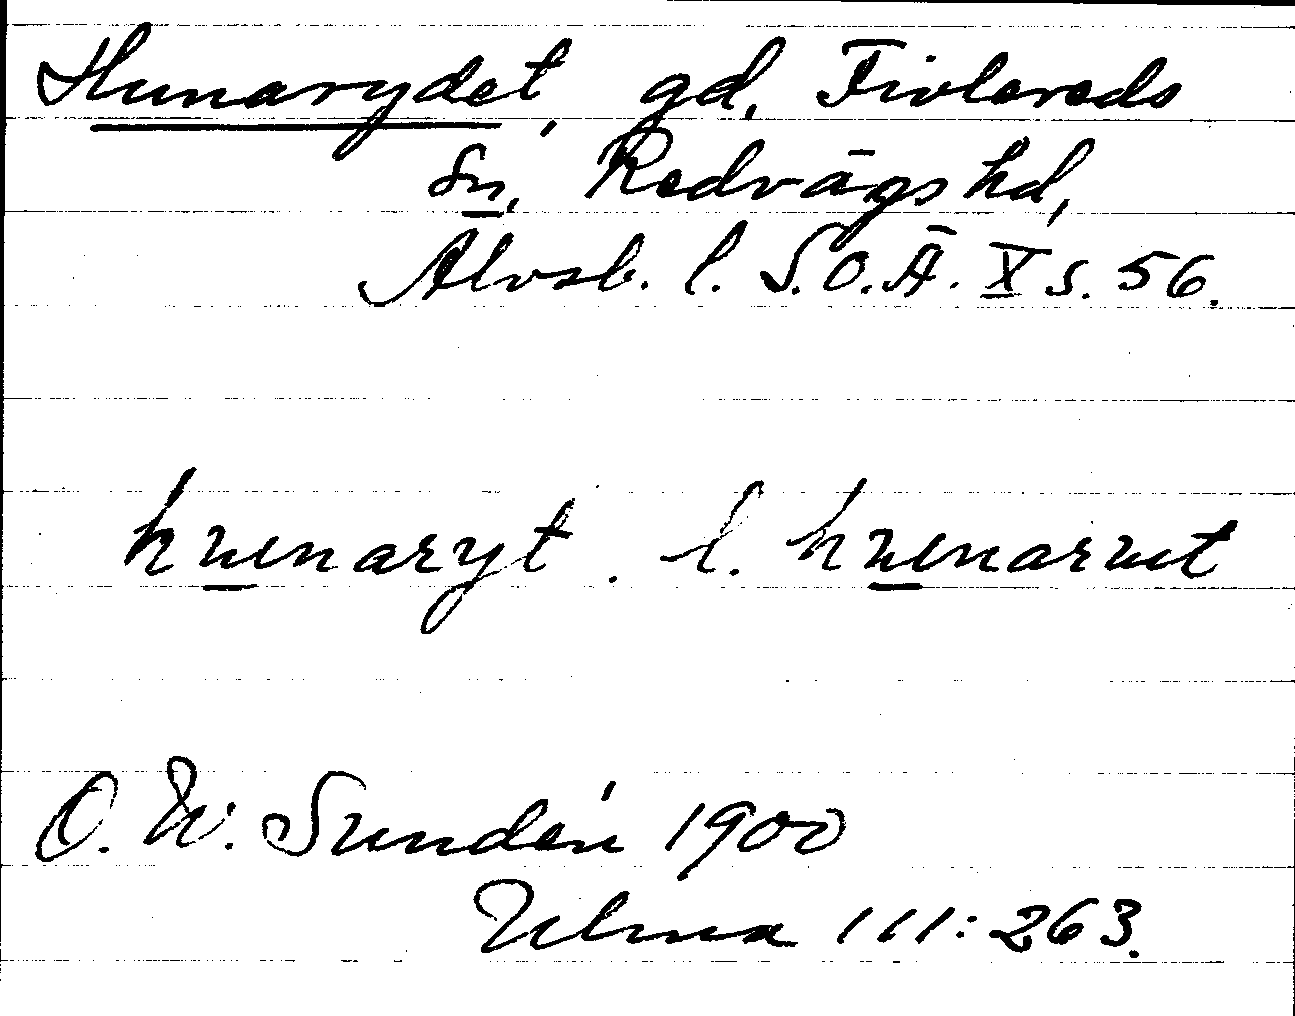 Hunarydet, gd, Fivlereds
sn, Redvägs hd,
Älvsb. l. S.O.Ä. X s. 56.
hunaryt. l. hunarut
O. W. Sundén 1900
Ulma 111:263.